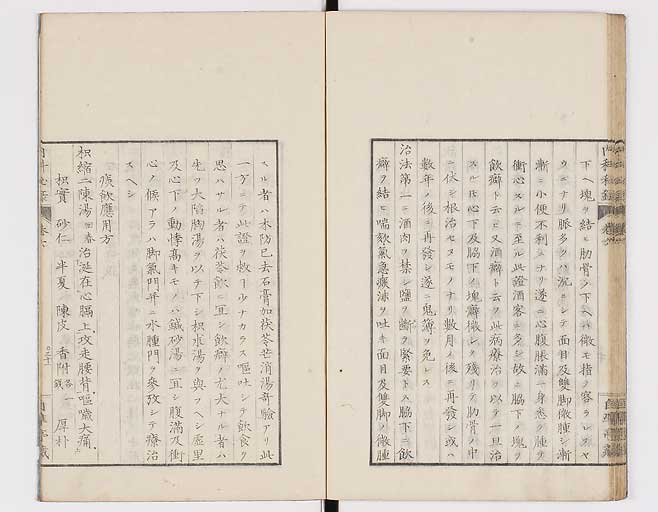 下ヘ塊ヲ結ヒ肋骨ノ下ヘハ微モ指ヲ容ラレスヤ
ウニナリ脈多クハ沉ニシテ面目及雙脚微腫シ漸
漸ニ小便不利ニナリ遂ニ心腹脹滿一身悉ク腫テ
衝心スルニ至ル此證酒客ニ多シ故ニ脇下ノ塊ヲ
飲癖ト云ヒ又酒癖ト云フ此病療治ヲ以テ一旦治
スル氏心下及脇下ノ塊癖微シク殘リテ肋骨ノ中
ニ休シ根治セヌモノナリ數月ノ後ニ再發シ或ハ
數年ノ後ニ再發シ遂ニ鬼簿ヲ免レス
治法第一ニ酒肉ヲ禁シ鹽ヲ斷ヲ緊要トス脇下ニ飲
癖ヲ結ヒ喘欬氣急痰沫ヲ吐キ面目及雙脚ノ微腫
スル者ハ木防已去石膏加茯苓芒消湯奇驗アリ此
一方ニテ此證ヲ救フ少ナカラス嘔吐シテ飲食ヲ
思ハサル者ハ茯苓飲ニ宜シ飲癖ノ尤大ナル者ハ
先ツ大陷胸湯ヲ以テ下シ枳朮湯ヲ與フヘシ虛里
及心下ノ動悸高キモノハ鍼砂湯ニ宜シ腹滿及衝
心ノ候アラハ脚氣門并ニ水腫門ヲ參攷シテ療治
スヘシ
痰飲應用方
枳縮二陳湯 回春 治涎在心膈上攻走腰背嘔噦大痛
枳實 砂仁 半夏 陳皮 香附 各一錢 厚朴